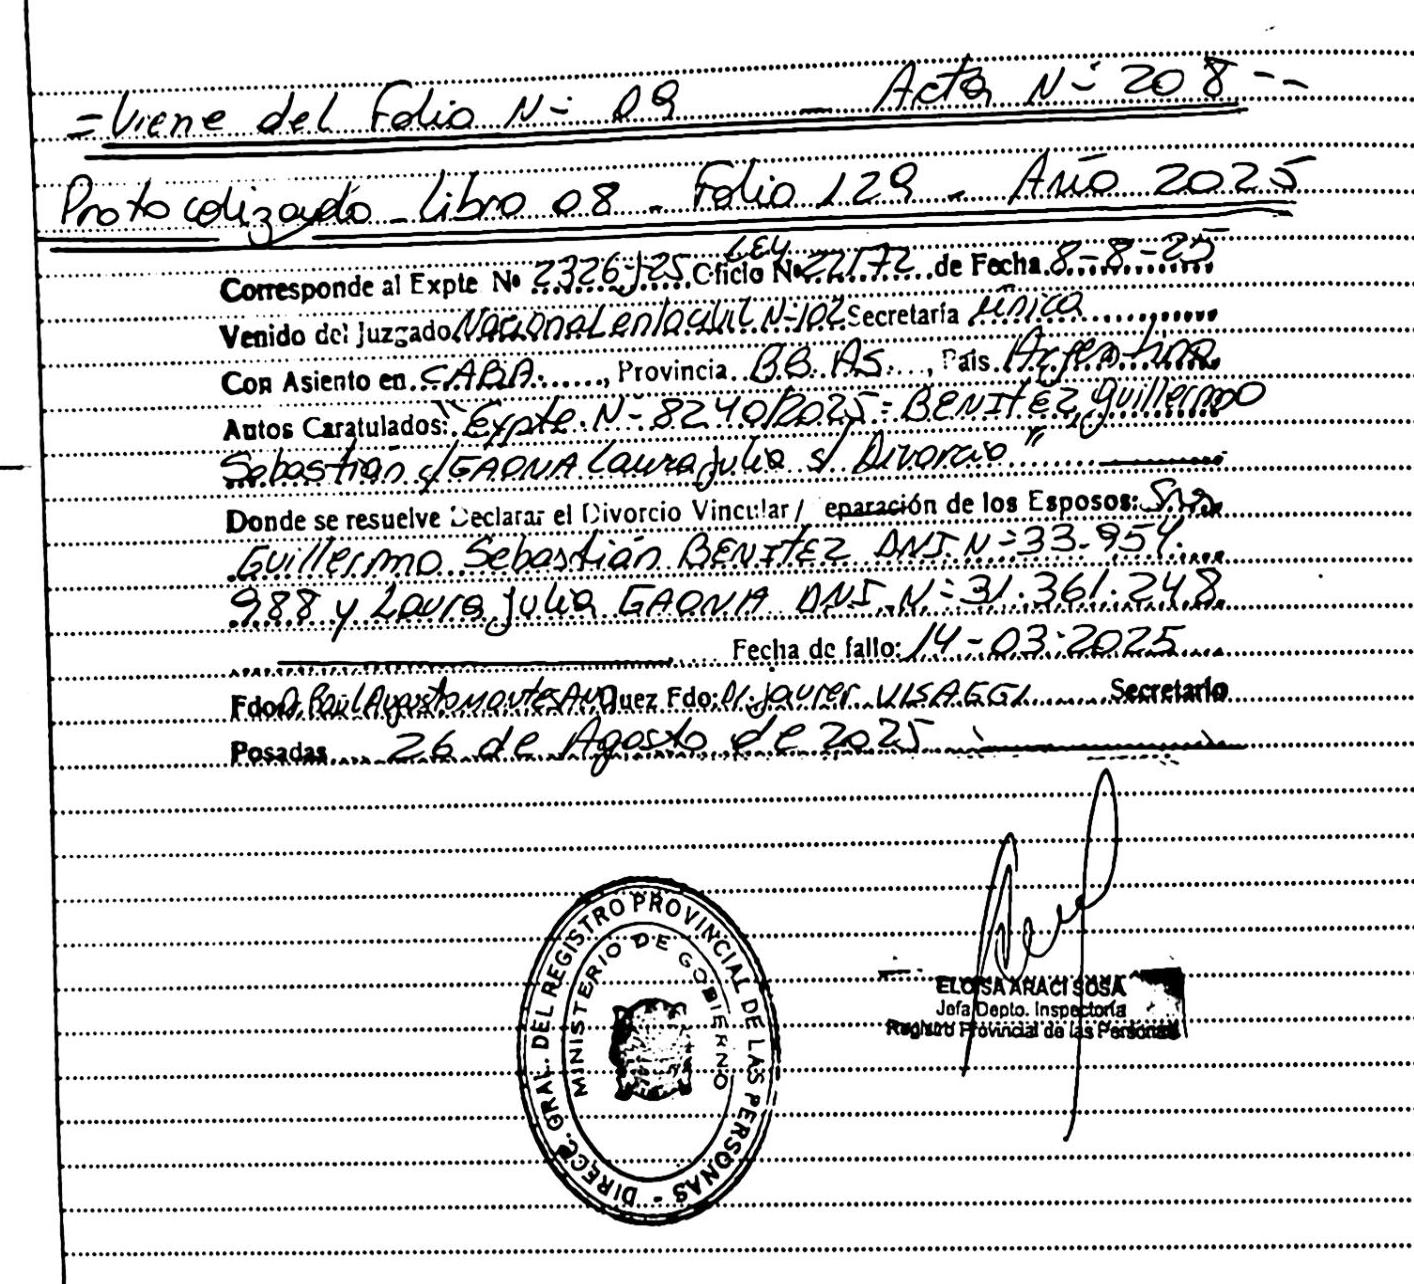 = Viene del Folio N= 09 - Acta N= 208 - -
Protocolizado - Libro 08 - Folio 129 - Año 2025
LEY
Corresponde al Expte Nº 2326-J-25 Oficio Nº 22172 de Fecha 8-8-25
Venido del Juzgado Nacional en lo Civil N-102 Secretaría única
Con Asiento en CABA, Provincia BB. AS., País Argentina
Autos Caratulados: "Expte. N= 8240/2025 = BENITEZ, Guillermo
Sebastián c/ GAONA Laura Julia s/ Divorcio"
Donde se resuelve Declarar el Divorcio Vincular / eparación de los Esposos: Sres
Guillermo Sebastián BENITEZ DNI N= 33.954.
988 y Laura Julia GAONA DNI N= 31.361.248
Fecha de fallo: 14-03-2025
Fdo Dr. Raúl Augusto Montes Juez Fdo: Dr. Javier VISAGGI Secretario
Posadas 26 de Agosto de 2025
DIRECC. GRAL. DEL REGISTRO PROVINCIAL DE LAS PERSONAS -
MINISTERIO DE GOBIERNO
ELOISA ARACI SOSA
Jefa Depto. Inspectoría
Registro Provincial de las Personas